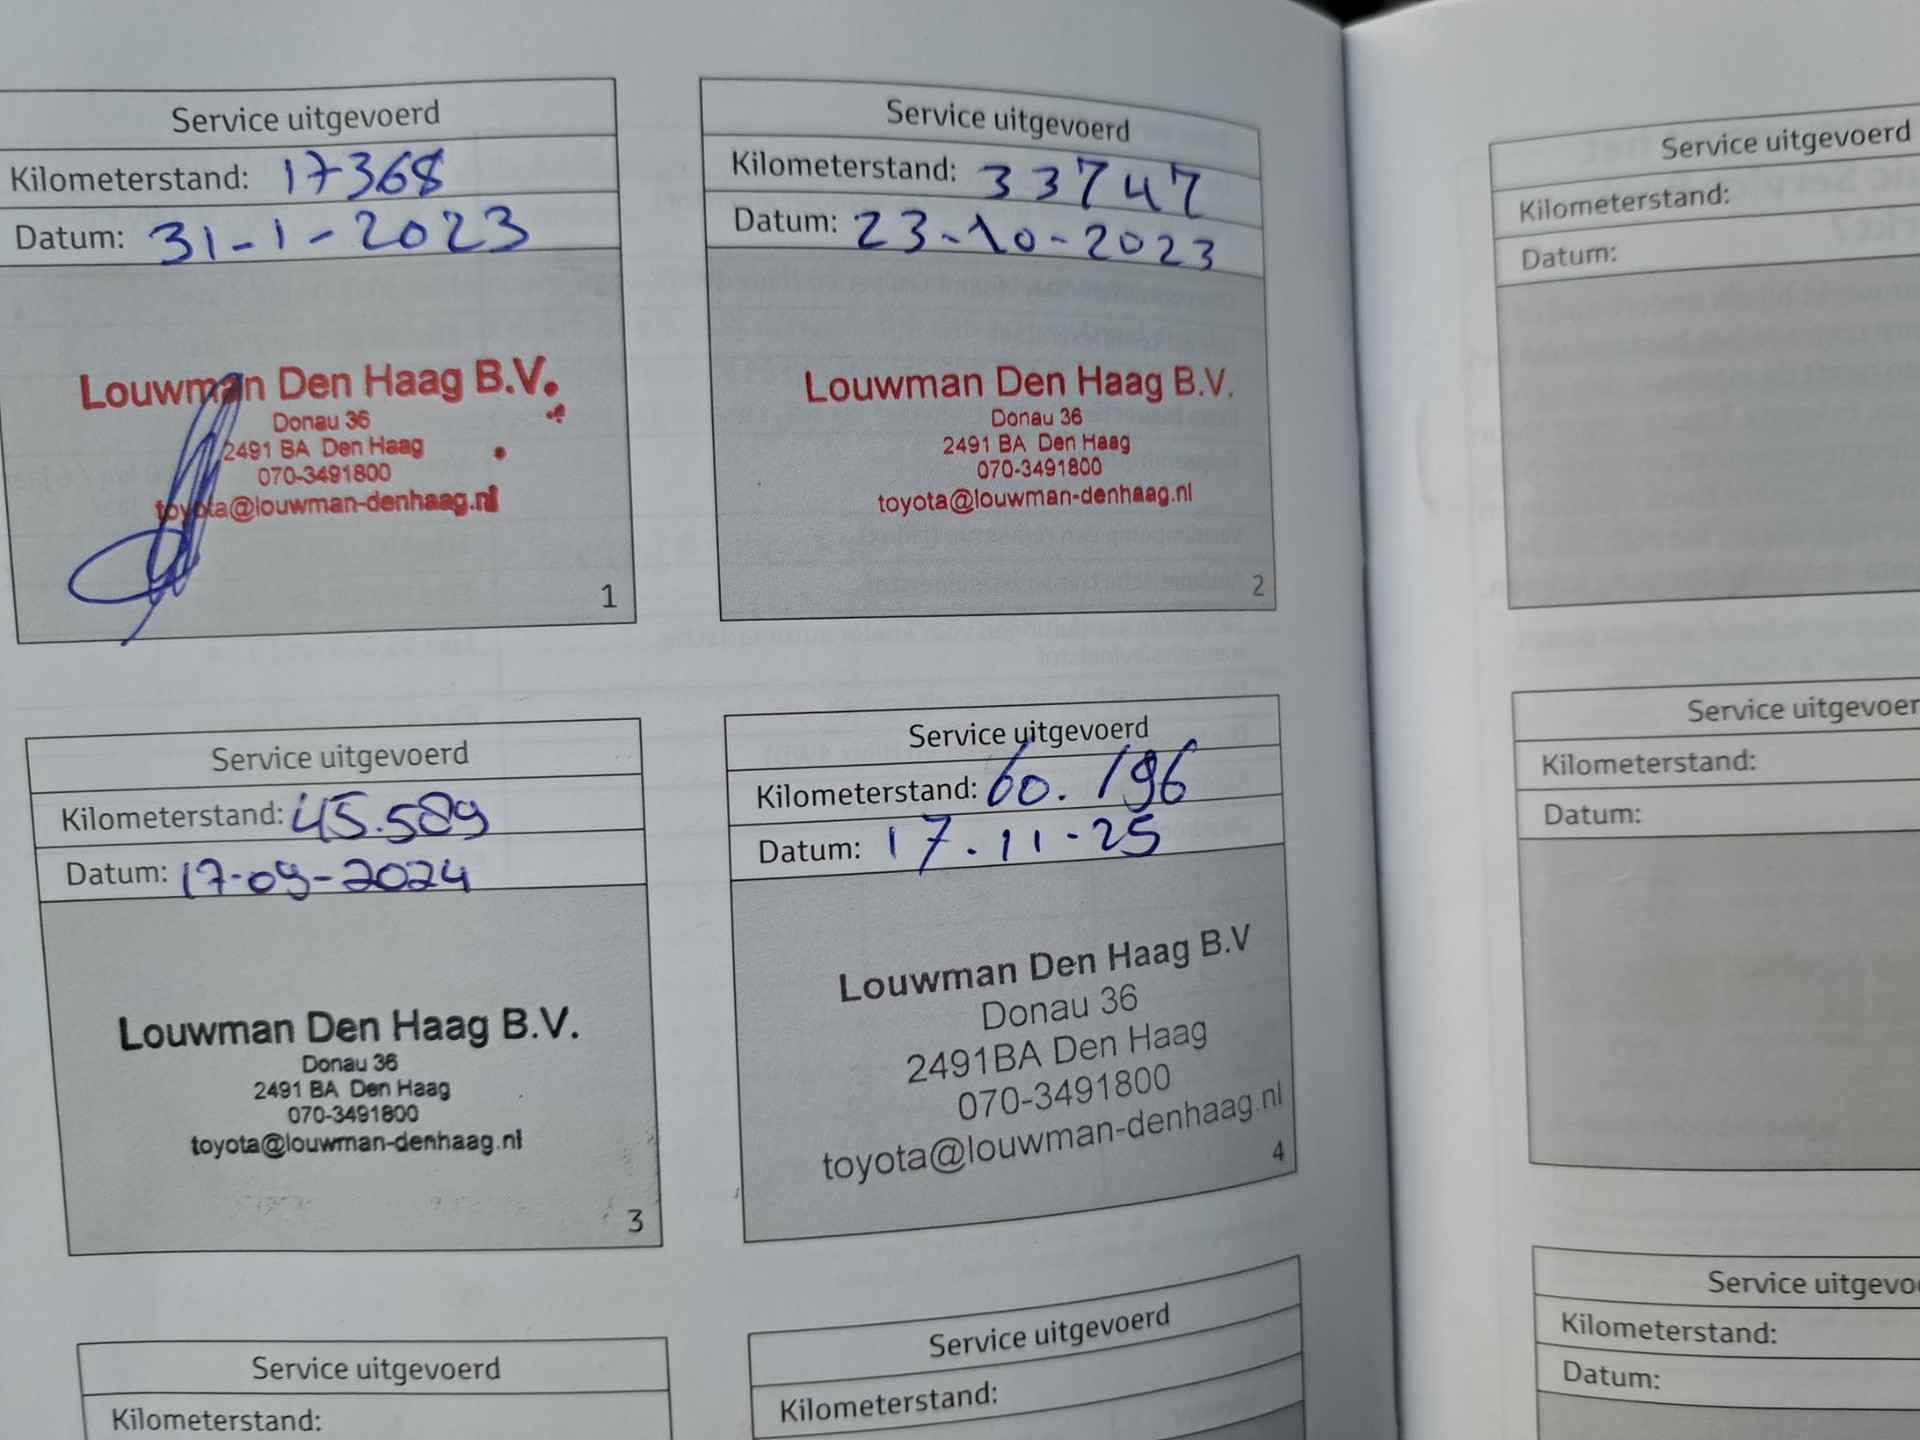 Service uitgevoerd
Kilometerstand: 17368
Datum: 31-1-2023
Louwman Den Haag B.V.
Donau 36
2491 BA Den Haag
070-3491800
toyota@louwman-denhaag.nl
1
Service uitgevoerd
Kilometerstand: 33747
Datum: 23-10-2023
Louwman Den Haag B.V.
Donau 36
2491 BA Den Haag
070-3491800
toyota@louwman-denhaag.nl
2
Service uitgevoerd
Kilometerstand: 45.589
Datum: 17-09-2024
Louwman Den Haag B.V.
Donau 36
2491 BA Den Haag
070-3491800
toyota@louwman-denhaag.nl
3
Service uitgevoerd
Kilometerstand: 60.196
Datum: 17.11-25
Louwman Den Haag B.V
Donau 36
2491BA Den Haag
070-3491800
toyota@louwman-denhaag.nl
4
Service uitgevoerd
Kilometerstand:
Service uitgevoerd
Kilometerstand:
Service uitgevoerd
Kilometerstand:
Datum:
Service uitgevoer
Kilometerstand:
Datum:
Service uitgevo
Kilometerstand:
Datum: